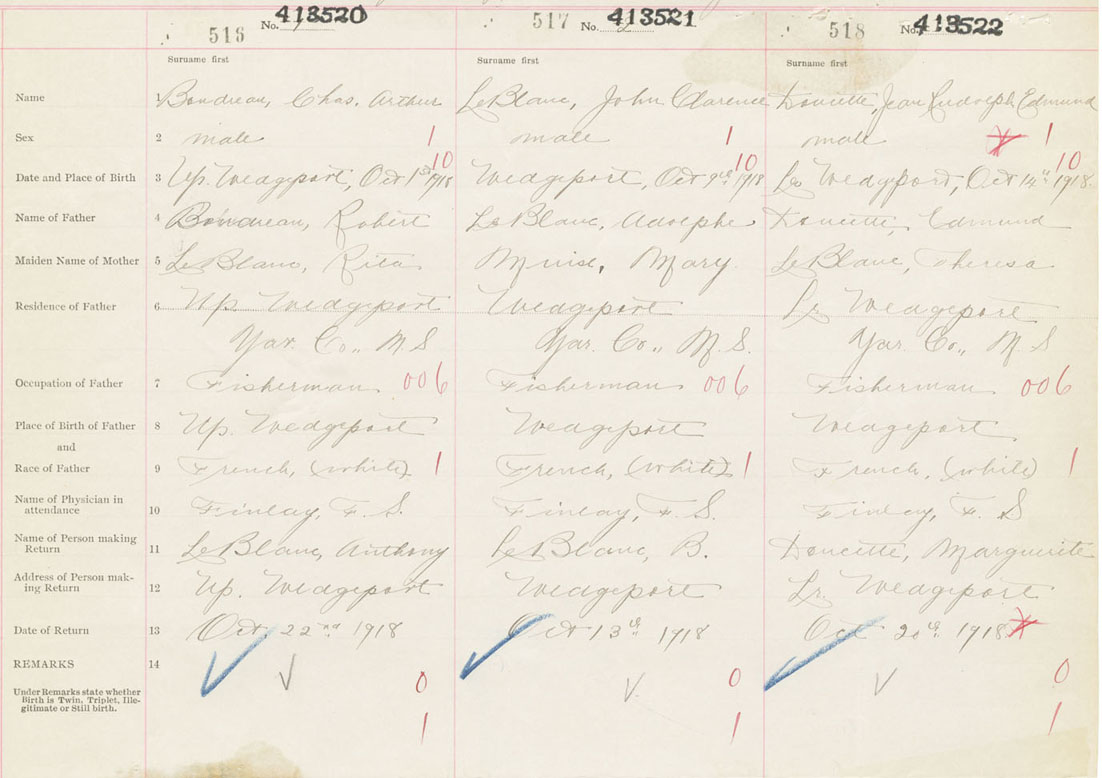 516 No. 1 413520 517 No. 2 413521 518 No. 413522
Surname first Surname first Surname first
Name 1 Boudreau, Chas. Arthur LeBlanc, John Clarence Doucette, Jean Rudolph Edmund
Sex 2 male 1 male 1 male 1
10 10 10
Date and Place of Birth 3 Up. Wedgeport, Oct 1st 1918 Wedgeport, Oct 9th 1918 Lr Wedgeport, Oct 14th 1918.
Name of Father 4 Boudreau, Robert LeBlanc, Adolphe Doucette, Edmund
Maiden Name of Mother 5 LeBlanc, Rita Muise, Mary. LeBlanc, Theresa
Residence of Father 6 Up. Wedgeport Wedgeport Lr. Wedgeport
Yar. Co., N.S Yar. Co., N.S. Yar. Co., N.S
Occupation of Father 7 Fisherman 006 Fisherman 006 Fisherman 006
Place of Birth of Father 8 Up. Wedgeport Wedgeport Wedgeport
and
Race of Father 9 French, (white) 1 French, (white) 1 French, (white) 1
Name of Physician in
attendance 10 Finlay, F. S. Finlay, F. S. Finlay, F. S
Name of Person making
Return 11 LeBlanc, Anthony LeBlanc, B. Doucette, Marguerite
Address of Person mak-
ing Return 12 Up. Wedgeport Wedgeport Lr. Wedgeport
Date of Return 13 Oct. 22nd 1918 Oct 13th 1918 Oct 20th 1918
REMARKS 14 0 0 0
Under Remarks state whether
Birth is Twin, Triplet, Ille-
gitimate or Still birth.
1 1 1